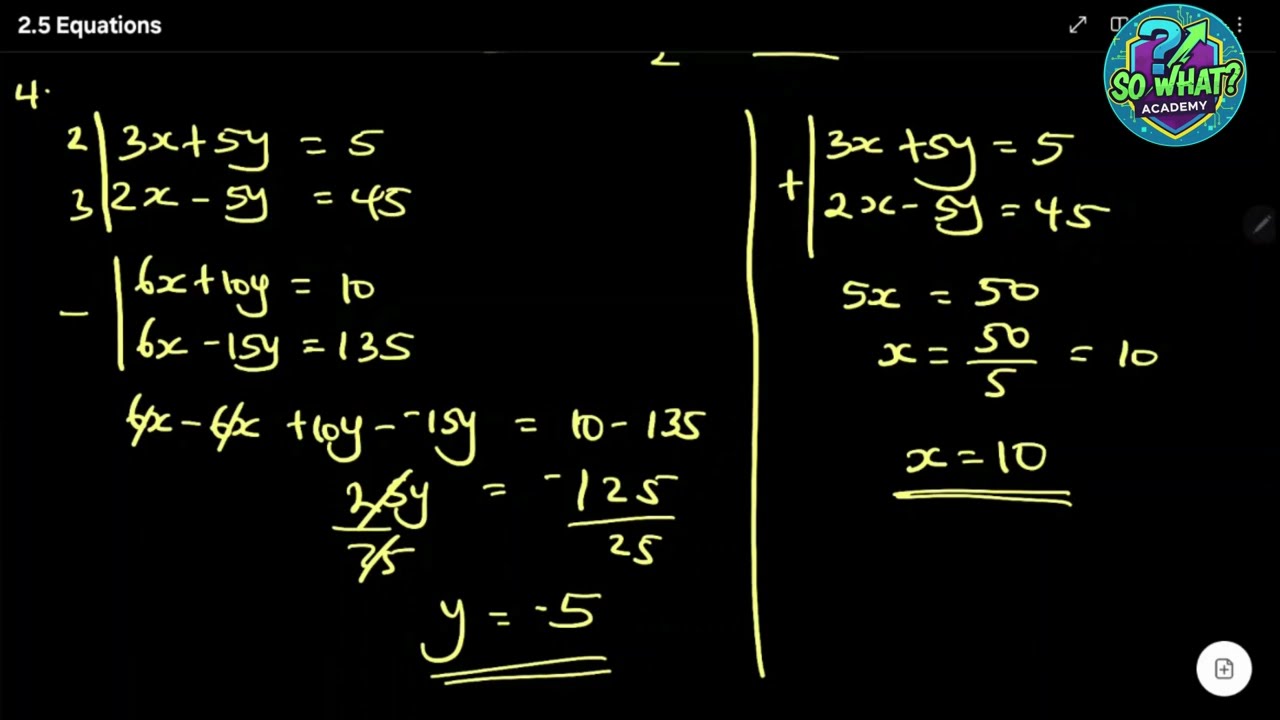 2.5 Equations
?
SO WHAT?
ACADEMY
4.
2 | 3x + 5y = 5
3 | 2x - 5y = 45
- | 6x + 10y = 10
6x - 15y = 135
6x - 6x + 10y - -15y = 10 - 135
25y = -125
25 25
y = -5
+ | 3x + 5y = 5
2x - 5y = 45
5x = 50
x = 50/5 = 10
x = 10